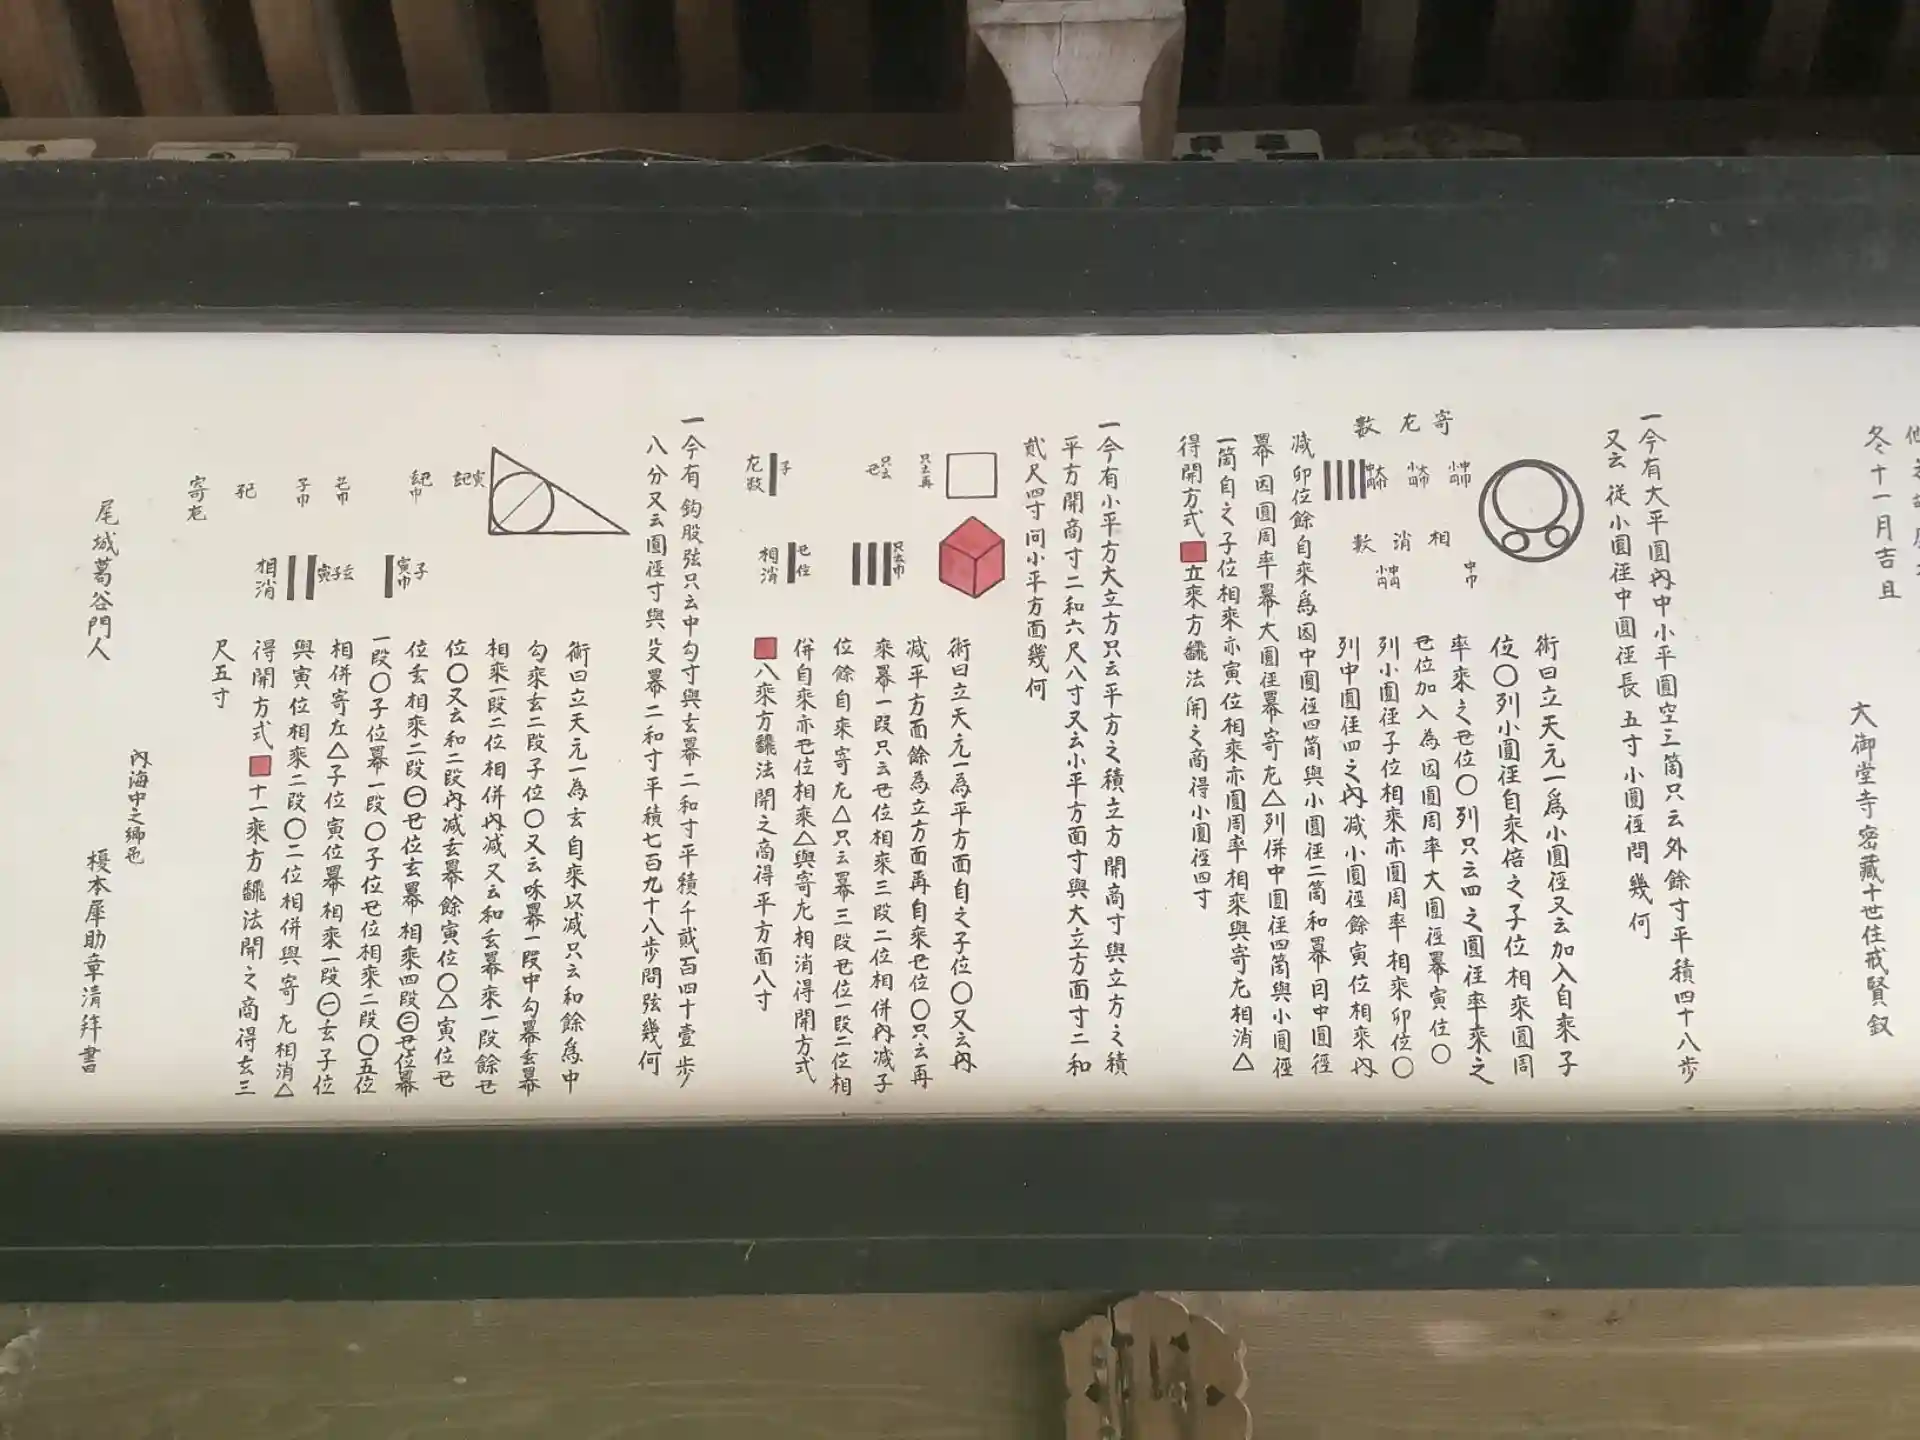 冬十一月吉且
大御堂寺密藏十世住戒賢叙
一今有大平圓內中小平圓空三箇只云外餘寸平積四十八歩
又云從小圓徑中圓徑長五寸小圓徑問幾何
術曰立天元一爲小圓徑又云加入自乘子
位〇列小圓徑自乘倍之子位相乘圓周
率乘之丑位〇列只云四之圓徑率乘之
丑位加入為因圓周率大圓徑冪寅位〇
列小圓徑子位相乘亦圓周率相乘卯位〇
列中圓徑四之內减小圓徑餘寅位相乘內
减卯位餘自乘爲因中圓徑四箇與小圓徑二箇和冪因中圓徑
冪因圓周率冪大圓徑冪寄左△列併中圓徑四箇與小圓徑
一箇自之子位相乘亦寅位相乘亦圓周率相乘與寄左相消△
得開方式 立乘方飜法開之商得小圓徑四寸
寄左數
相消數
一今有小平方大立方只云平方之積立方開商寸與立方之積
平方開商寸二和六尺八寸又云小平方面寸與大立方面寸二和
貳尺四寸问小平方面幾何
術曰立天元一為平方面自之子位〇又云內
减平方面餘為立方面再自乘丑位〇只云再
乘冪一段只云丑位相乘三段二位相併內减子
位餘自乘寄左△只云冪三段丑位一段二位相
併自乘亦丑位相乘△與寄左相消得開方式
八乘方飜法開之商得平方面八寸
只云再
只云丑
子
左數
只云巾
丑位
相消
一今有鈎股弦只云中勾寸與玄冪二和寸平積千貳百四十壹歩
八分又云圓徑寸與殳冪二和寸平積七百九十八歩問弦幾何
術曰立天元一為玄自乘以减只云和餘為中
勾乘玄二段子位〇又云冪一段中勾冪玄冪
相乘一段二位相併內减又云和玄冪乘一段餘丑
位〇又云和二段內减玄冪餘寅位〇△寅位丑
位玄相乘二段㊀丑位玄冪相乘四段㊁丑位冪
一段〇子位冪一段〇子位丑位相乘二段〇五位
相併寄左△子位寅位冪相乘一段㊀玄子位
與寅位相乘二段〇二位相併與寄左相消△
得開方式 十一乘方飜法開之商得玄三
尺五寸
子巾
寄左
寅巾子
寅子玄
相消
尾城葛谷門人
內海中之郷邑
榎本犀助章清拜書